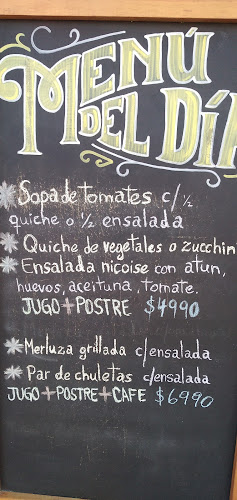 MENÚ
DEL DÍA
Sopa de tomates c/ ½
quiche o ½ ensalada
Quiche de vegetales o zucchin
Ensalada nicoise con atun,
huevos, aceituna, tomate.
JUGO + POSTRE $4990
Merluza grillada c/ensalada
Par de chuletas c/ensalada
JUGO + POSTRE + CAFE $6990